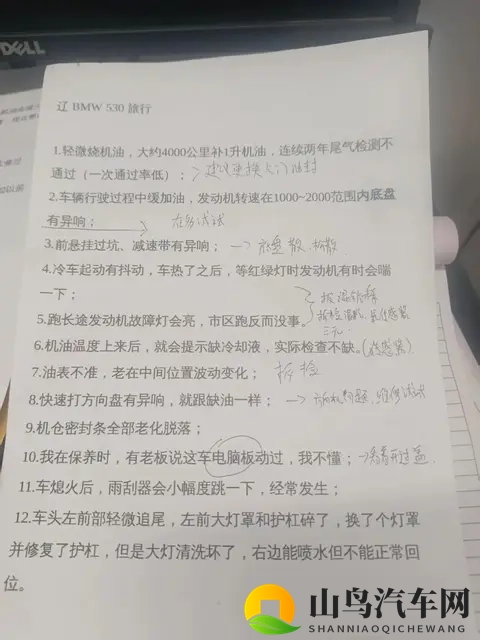 DELL
辽 BMW 530 旅行
1.轻微烧机油，大约4000公里补1升机油，连续两年尾气检测不
通过（一次通过率低）；建议更换气门油封
2.车辆行驶过程中缓加油，发动机转速在1000~2000范围内底盘
有异响；
3.前悬挂过坑、减速带有异响；底盘散
4.冷车起动有抖动，车热了之后，等红绿灯时发动机有时会喘
一下；
5.跑长途发动机故障灯会亮，市区跑反而没事。
三元
6.机油温度上来后，就会提示缺冷却液，实际检查不缺。
7.油表不准，老在中间位置波动变化；拆检
8.快速打方向盘有异响，就跟缺油一样；方向机问题
9.机仓密封条全部老化脱落；
10.我在保养时，有老板说这车电脑板动过，我不懂；
11.车熄火后，雨刮器会小幅度跳一下，经常发生；
12.车头左前部轻微追尾，左前大灯罩和护杠碎了，换了个灯罩
并修复了护杠，但是大灯清洗坏了，右边能喷水但不能正常回
位。
山鸟汽车网
SHANNIAOQICHEWANG